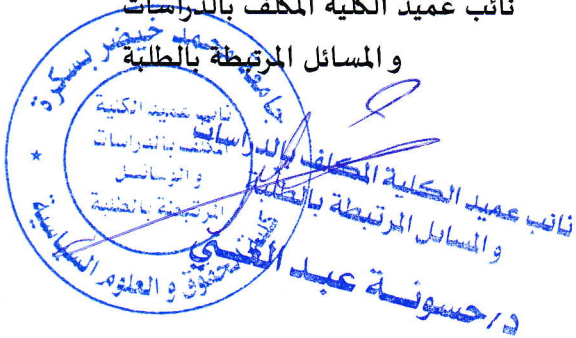 نائب عميد الكلية المكلف بالدراسات
و المسائل المرتبطة بالطلبة
جامعة محمد خيضر بسكرة
نائب عميد الكلية
المكلف بالدراسات
و المسائل
المرتبطة بالطلبة
كلية الحقوق و العلوم السياسية
نائب عميد الكلية المكلف بالدراسات
و المسائل المرتبطة بالطلبة
د/حسونة عبد الغني